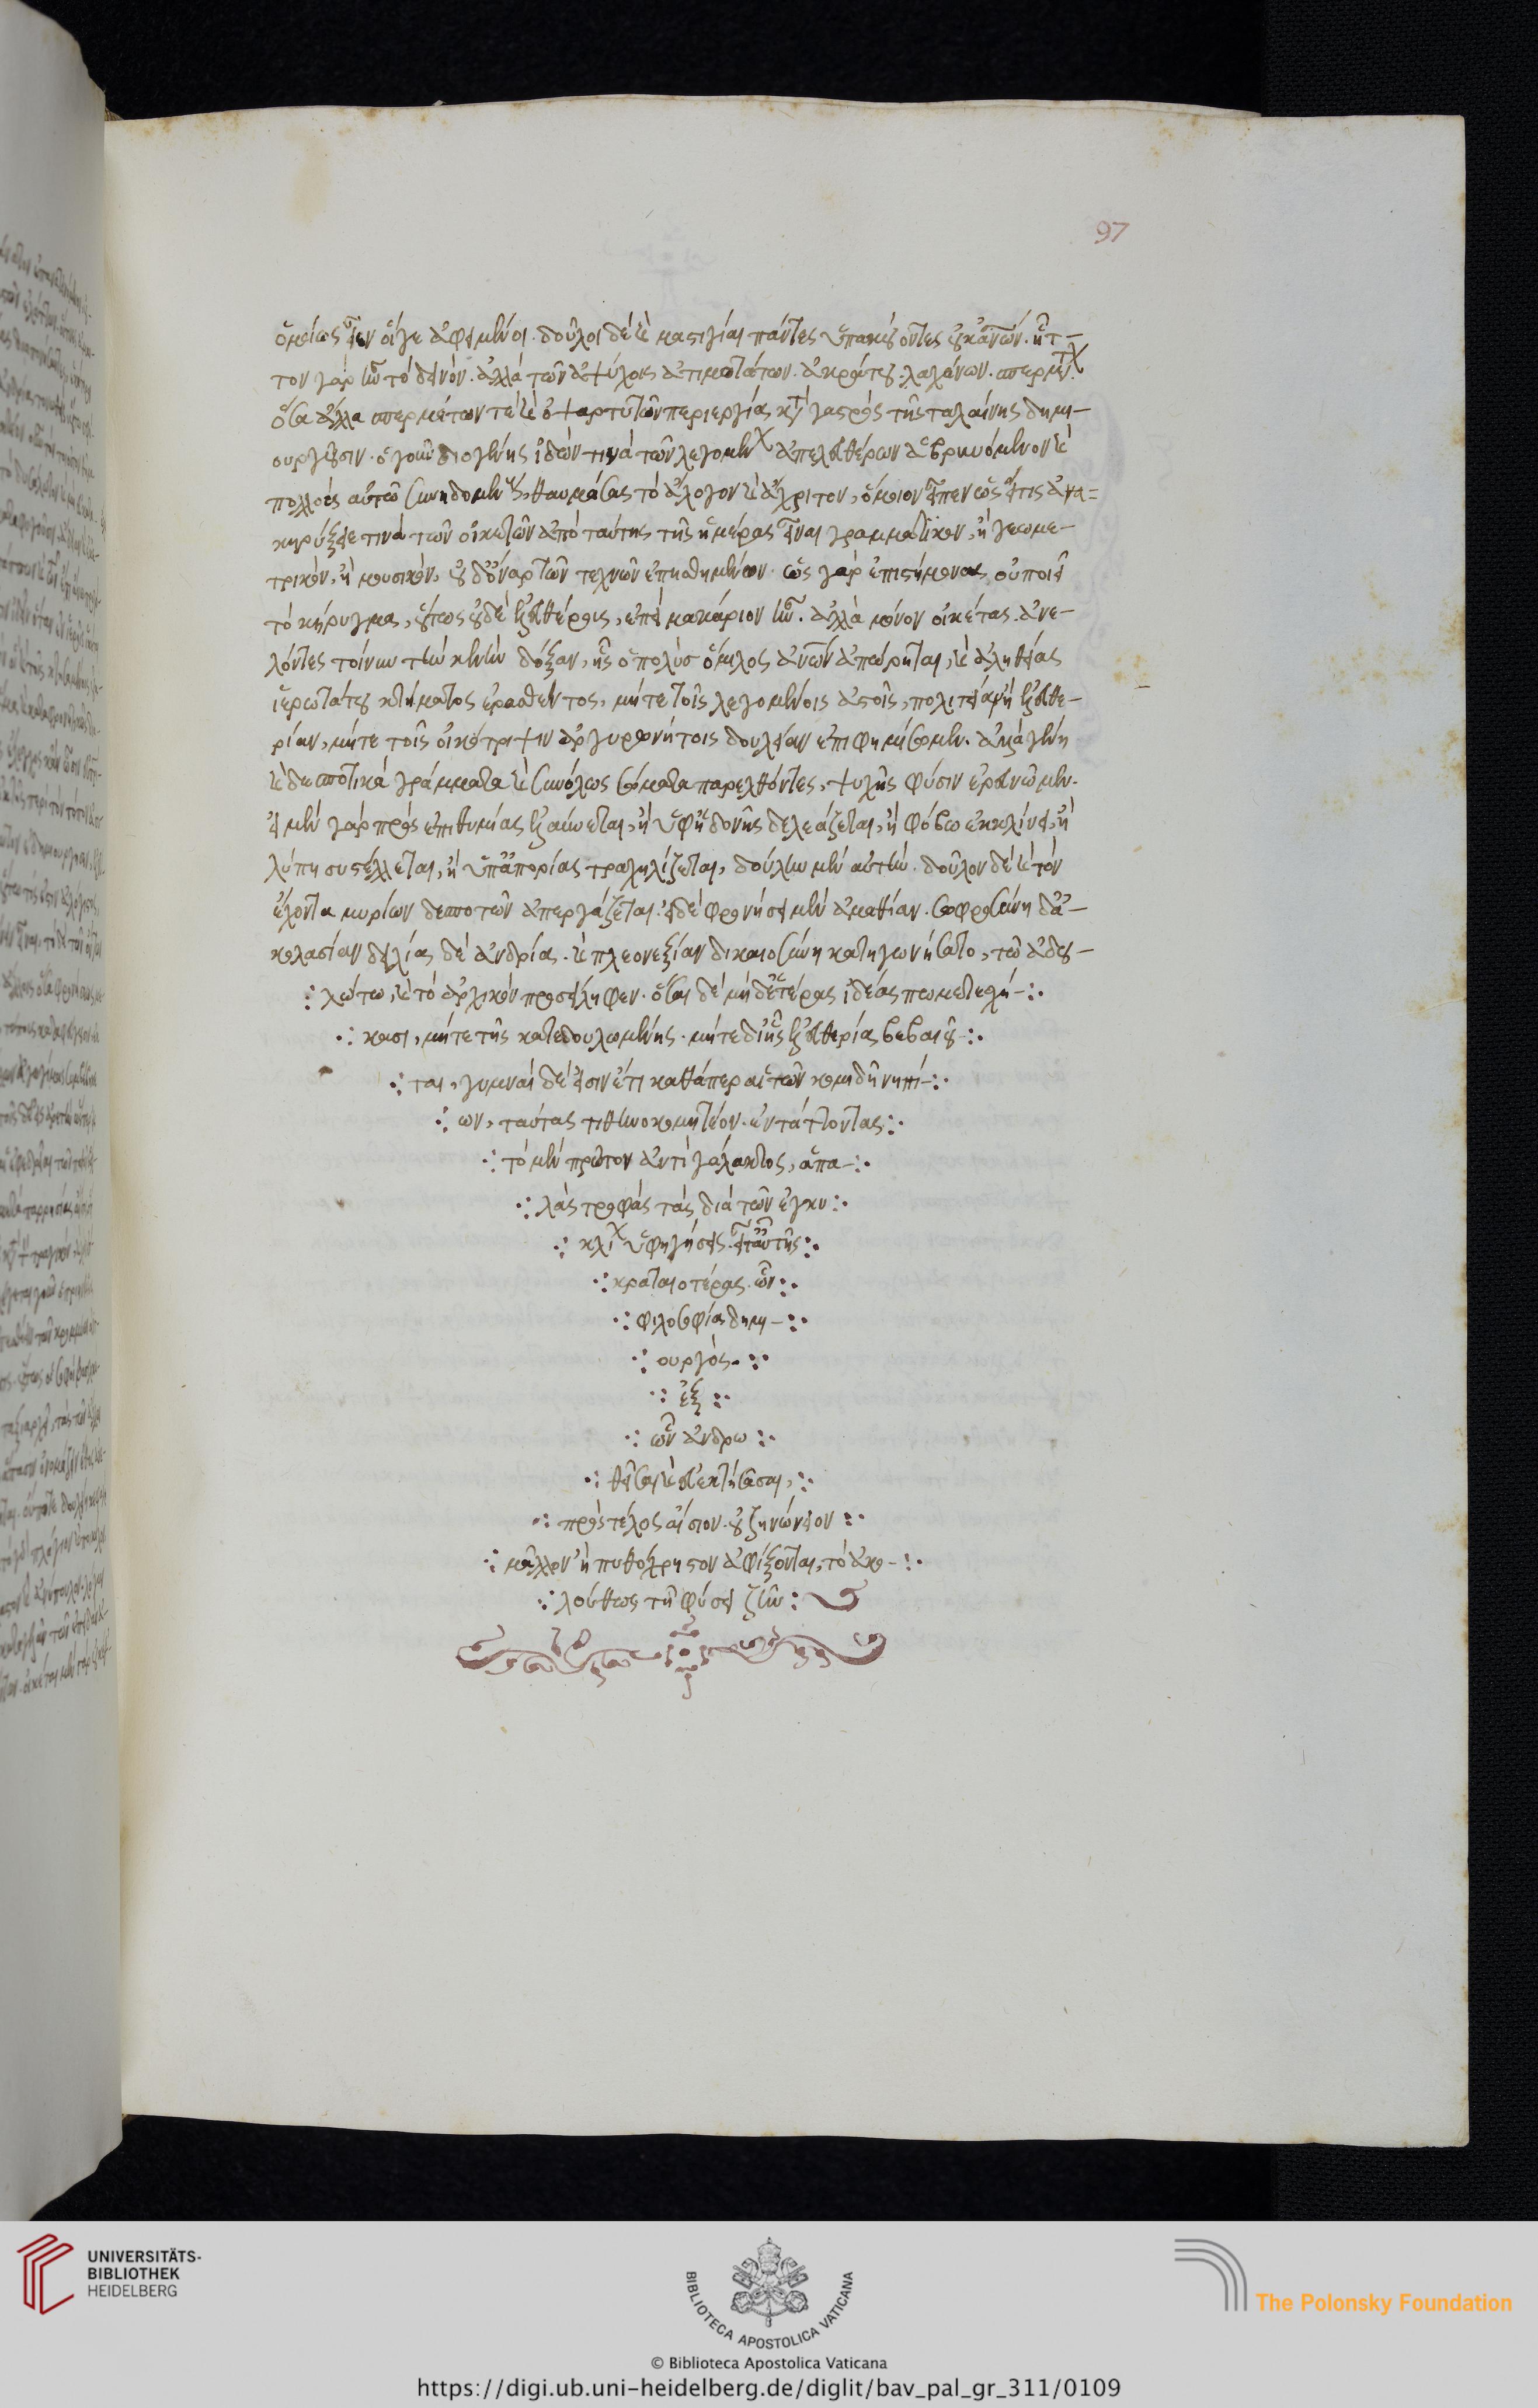 97
ὁμοίως εἶεν οἵ γε ἀφειμένοι. δοῦλοι δὲ καὶ μαστιγίαι πάντες ὑπακούοντες οὐκ ἀνθρώπων. ἧτ-
τον γὰρ ἦν τὸ δεινόν. ἀλλὰ τῶν ἀψύχοις ἀτιμοτάτων. ἀκράτου. λαχάνων. πεμμάτων.
ὅσα ἄλλα πεμμάτων τε καὶ ὀψαρτυτῶν περιεργίαι κατὰ γαστρὸς τῆς ταλαίνης δημι-
ουργοῦσιν. ὁ γοῦν διογένης ἰδών τινα τῶν λεγομένων ἀπελευθέρων ἁβρυνόμενον καὶ
πολλοὺς αὐτῷ συνηδομένους, θαυμάσας τὸ ἄλογον καὶ ἄκριτον, ὅμοιον εἶπεν ὡς εἴ τις ἀνα=
κηρύξειέ τινα τῶν οἰκετῶν ἀπὸ ταύτης τῆς ἡμέρας εἶναι γραμματικὸν, ἢ γεωμε-
τρικὸν, ἢ μουσικὸν, οὐδ' ὄναρ τῶν τεχνῶν ἐπῃσθημένον. ὡς γὰρ ἐπιστήμονας οὐ ποιεῖ
τὸ κήρυγμα, οὕτως οὐδὲ ἐλευθέρους, ἐπεὶ μακάριον ἦν. ἀλλὰ μόνον οἰκέτας. ἀνε-
λόντες τοίνυν τὴν κενὴν δόξαν, ἧς ὁ πολὺς ὅμιλος ἀνθρώπων ἀπῃώρηται, καὶ ἀληθείας
ἱερωτάτου κτήματος ἐρασθέντος, μήτε τοῖς λεγομένοις ἀστοῖς, πολιτείαν ἢ ἐλευθε-
ρίαν, μήτε τοῖς οἰκότριψιν ἀργυρωνήτοις δουλείαν ἐπιφημίσωμεν. ἀλλὰ γένη
καὶ δεσποτικὰ γράμματα καὶ συνόλως σώματα παρελθόντες, ψυχῆς φύσιν ἐρευνῶμεν.
εἰ μὲν γὰρ πρὸς ἐπιθυμίας ἐλαύνεται, ἢ ὑφ' ἡδονῆς δελεάζεται, ἢ φόβῳ ἐκκλίνει, ἢ
λύπῃ συστέλλεται, ἢ ὑπ' ἀπορίας τραχηλίζεται, δούλην μὲν αὑτὴν. δοῦλον δὲ καὶ τὸν
ἔχοντα μυρίων δεσποτῶν ἀπεργάζεται. εἰ δὲ φρονήσει μὲν ἀμαθίαν. σωφροσύνῃ δ' ἀ-
κολασίαν δειλίας δὲ ἀνδρίας. καὶ πλεονεξίαν δικαιοσύνῃ κατηγωνίσατο, τῷ ἀδου-
λώτῳ, καὶ τὸ ἀρχικὸν προσείληφεν. ὅσαι δὲ μηδετέρας ἰδέας πω μετεσχή-
κασι, μήτε τῆς καταδουλωμένης. μήτε δι' ἧς ἐλευθερία βεβαιοῦ-
ται, γυμναὶ δέ εἰσιν ἔτι καθάπερ αἱ τῶν κομιδῇ νηπί-
ων, ταύτας τιθηνοκομητέον. ἐντάττοντας
τὸ μὲν πρῶτον ἀντὶ γάλακτος, ἁπα-
λὰς τροφὰς τὰς διὰ τῶν ἐγκυ
κλίων ὑφηγήσεις. εἶτ' αὖτις
κραταιοτέρας. ὧν
φιλοσοφία δημι-
ουργός.
ἐξ
ὧν ἀνδρω
θεῖσαι καὶ εὐεκτήσασαι,
πρὸς τέλος αἴσιον. οὐ ζηνώνειον
μᾶλλον ἢ πυθόχρηστον ἀφίξονται, τὸ ἀκο-
λούθως τῇ φύσει ζῆν:
UNIVERSITÄTS-
BIBLIOTHEK
HEIDELBERG
BIBLIOTECA APOSTOLICA VATICANA
The Polonsky Foundation
© Biblioteca Apostolica Vaticana
https://digi.ub.uni-heidelberg.de/diglit/bav_pal_gr_311/0109